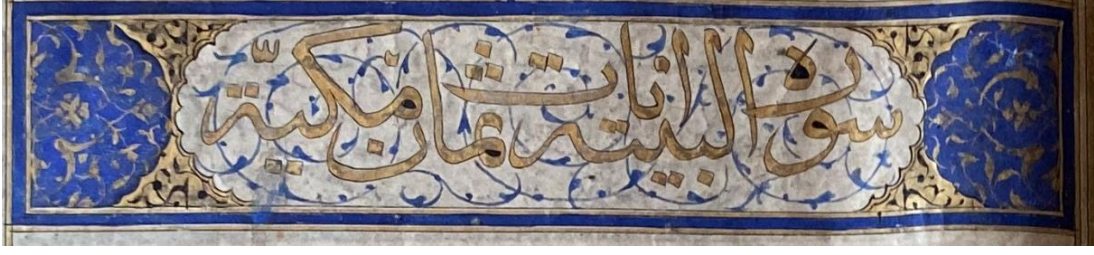 سورة البينة ثمان ايات مكية